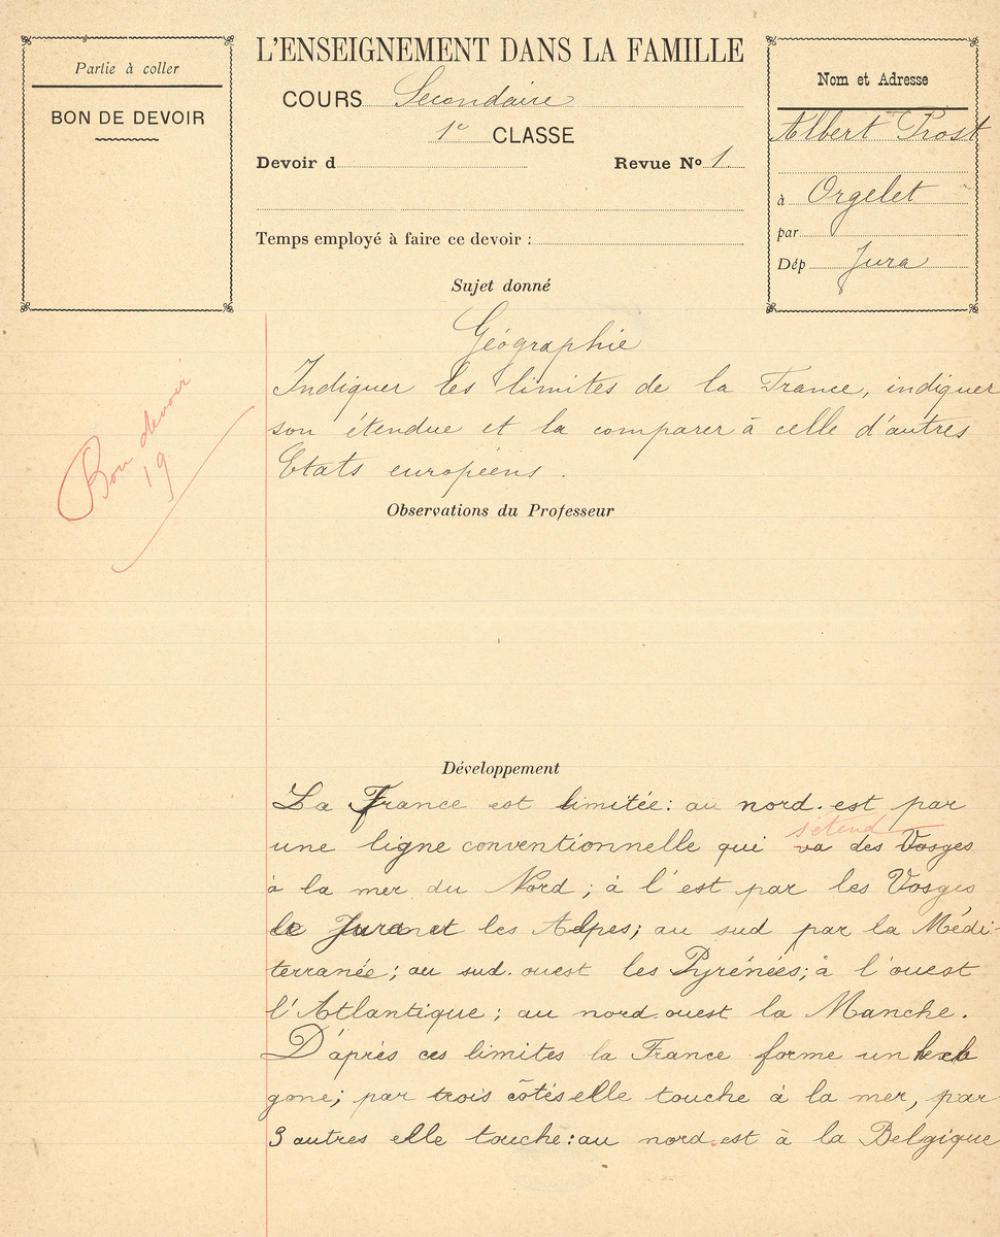 Partie à coller
BON DE DEVOIR
L'ENSEIGNEMENT DANS LA FAMILLE
COURS Secondaire
1e CLASSE
Devoir d
Revue No 1
Temps employé à faire ce devoir :
Nom et Adresse
Albert Prost
à Orgelet
par
Dép Jura
Sujet donné
Géographie
Indiquer les limites de la France, indiquer
son étendue et la comparer à celle d'autres
Etats européens.
Bon devoir
19
Observations du Professeur
Développement
La France est limitée: au nord-est par
s'étend
une ligne conventionnelle qui va des Vosges
à la mer du Nord; à l'est par les Vosges
le Jura et les Alpes; au sud par la Médi-
terranée; au sud-ouest les Pyrénées; à l'ouest
l'Atlantique; au nord-ouest la Manche.
D'après ces limites la France forme un
gone; par trois côtés elle touche à la mer, par
3 autres elle touche: au nord-est à la Belgique